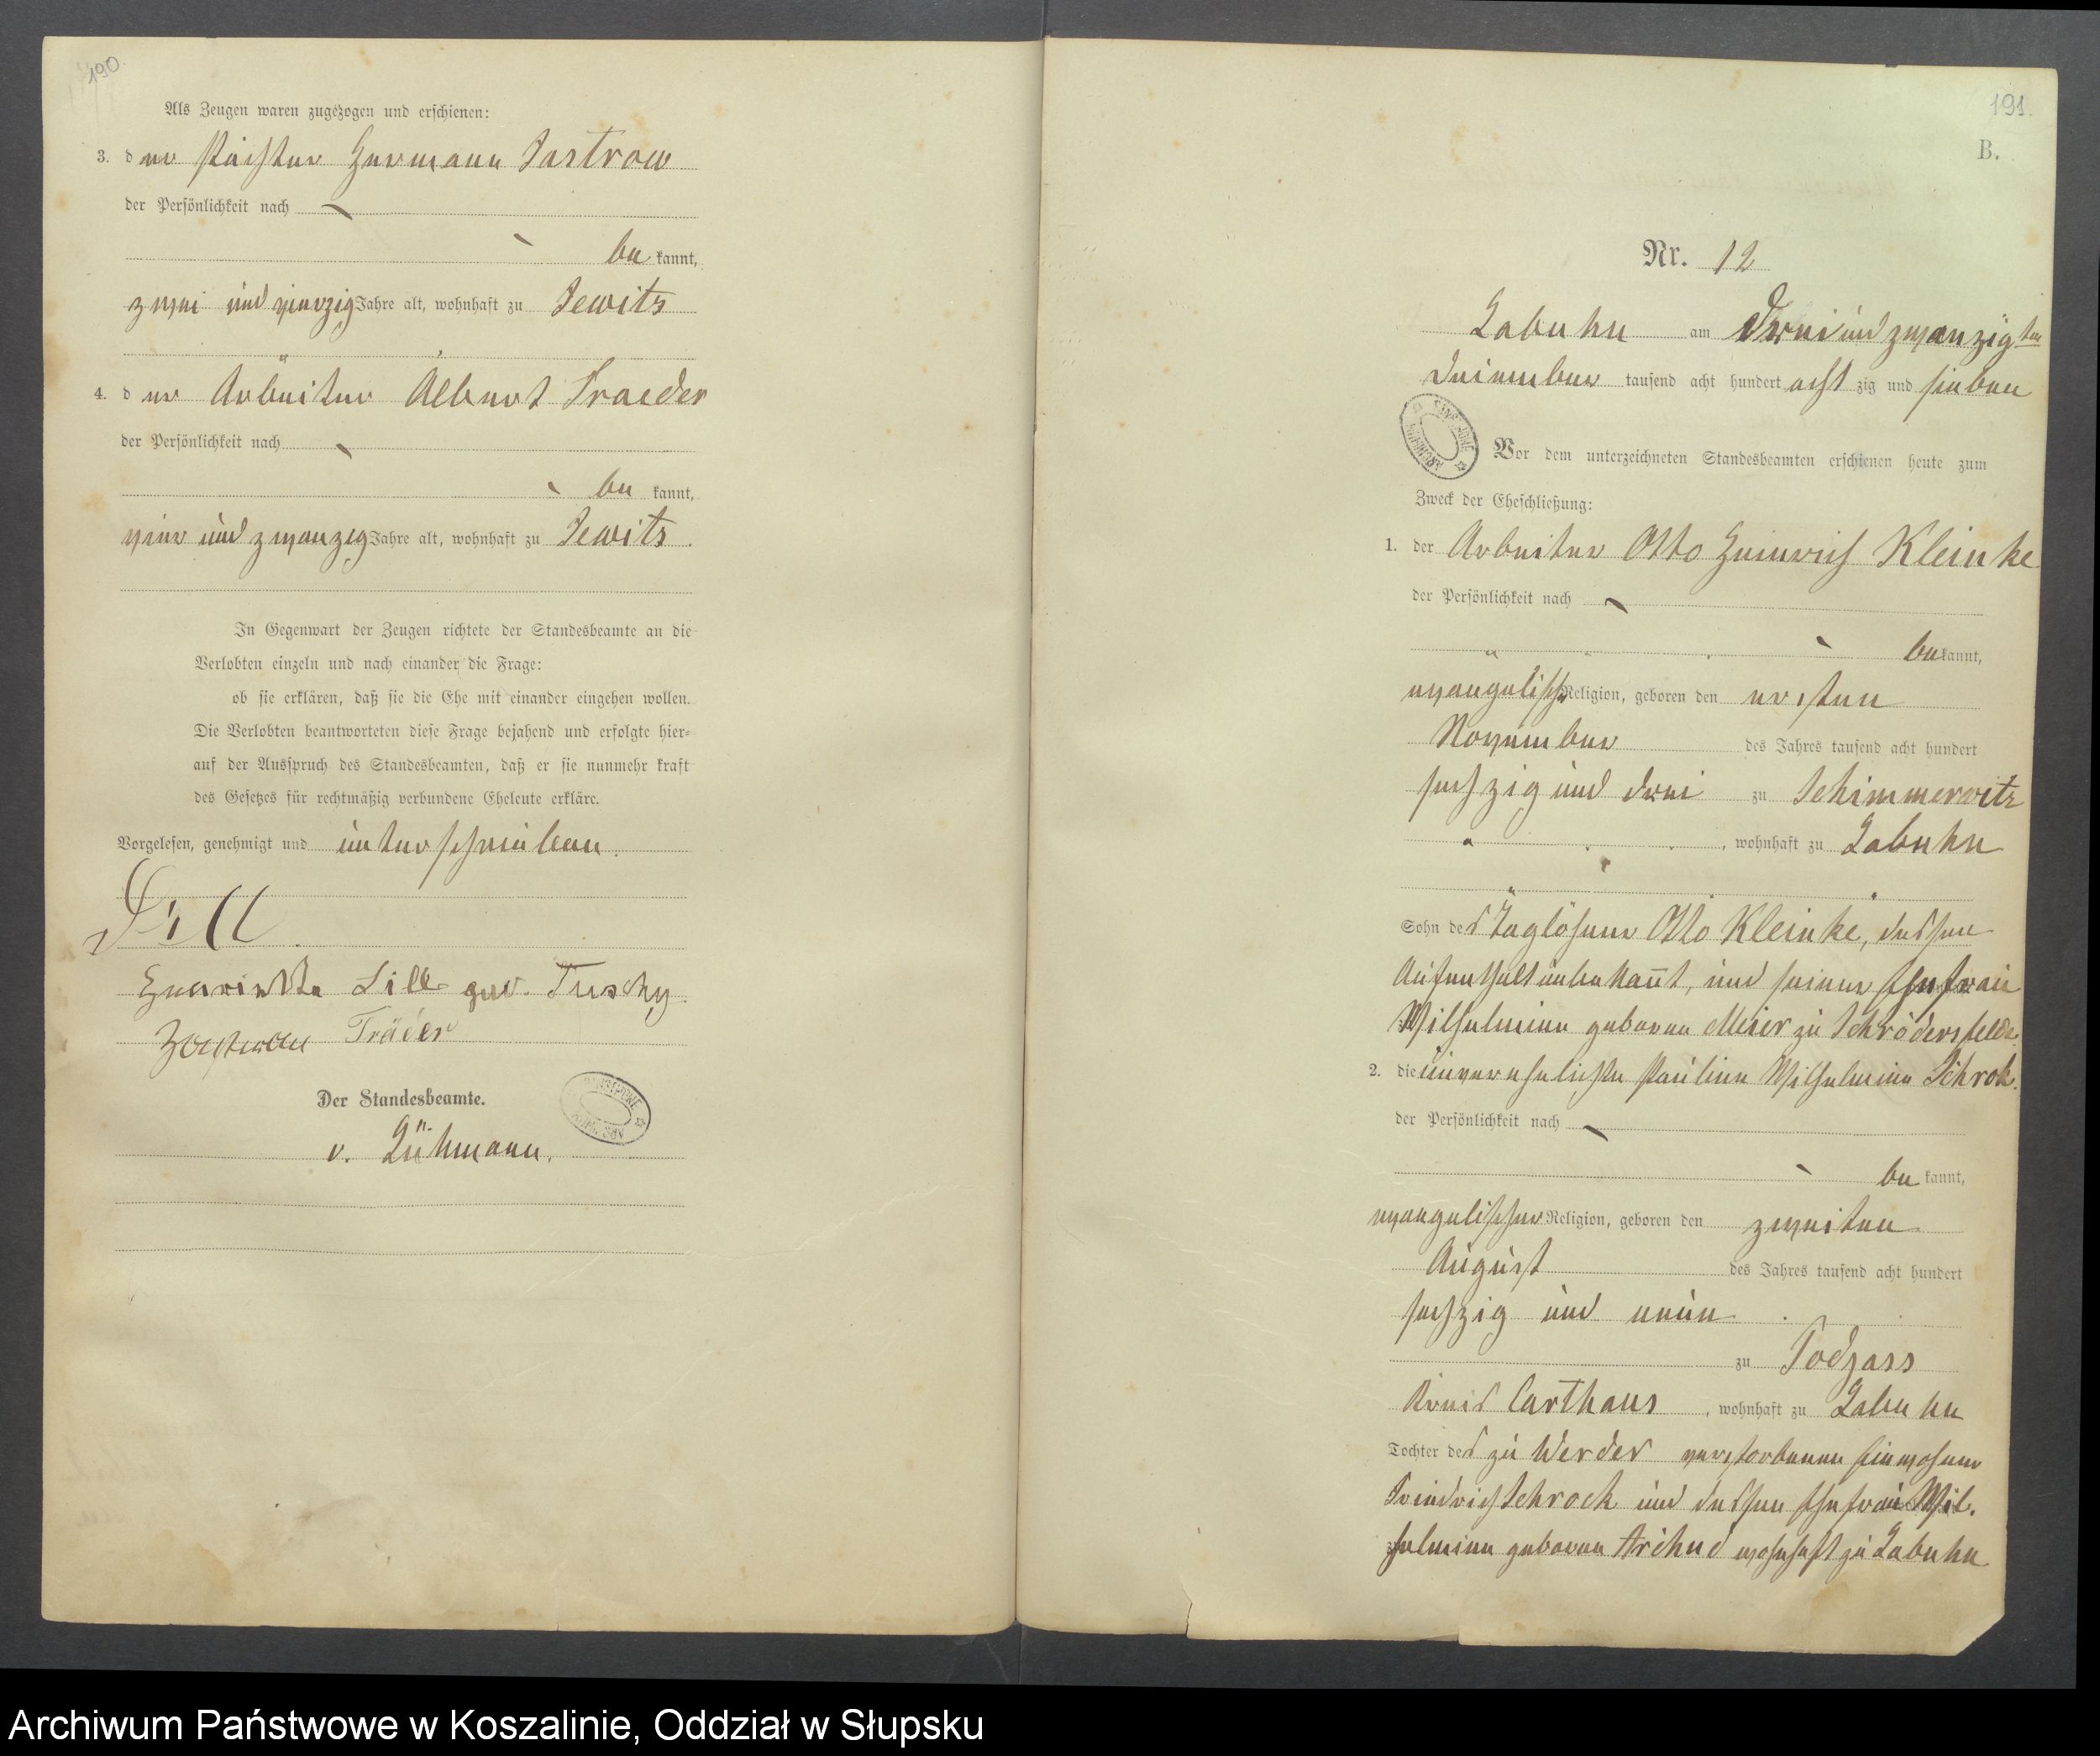 190
Als Zeugen waren zugezogen und erschienen:
3. der Pächter Hermann Jastrow
der Persönlichkeit nach
bekannt,
zwei und vierzig Jahre alt, wohnhaft zu Jewitz
4. der Arbeiter Albert Traeder
der Persönlichkeit nach
bekannt,
vier und zwanzig Jahre alt, wohnhaft zu Jewitz.
In Gegenwart der Zeugen richtete der Standesbeamte an die
Verlobten einzeln und nach einander die Frage:
ob sie erklären, daß sie die Ehe mit einander eingehen wollen.
Die Verlobten beantworteten diese Frage bejahend und erfolgte hier-
auf der Ausspruch des Standesbeamten, daß er sie nunmehr kraft
des Gesetzes für rechtmäßig verbundene Eheleute erkläre.
Vorgelesen, genehmigt und unterschrieben.
Lill geb. Tuschy.
Träder
Der Standesbeamte.
v. Lühmann.
191.
B.
Nr. 12
Labuhn am dreiundzwanzigsten
Dezember tausend acht hundert achtzig und sieben
Vor dem unterzeichneten Standesbeamten erschienen heute zum
Zweck der Eheschließung:
1. der Arbeiter Otto Heinrich Kleinke
der Persönlichkeit nach
bekannt,
evangelischer Religion, geboren den ersten
November des Jahres tausend acht hundert
sechzig und drei zu Schimmerwitz
, wohnhaft zu Labuhn
Sohn des Taglöhner Otto Kleinke, dessen
Aufenthalt unbekannt, und seiner Ehefrau
Wilhelmine geborene Meier zu Schrödersfelde
2. die unverehelichte Pauline Wilhelmine Schrok.
der Persönlichkeit nach
bekannt,
evangelischer Religion, geboren den zweiten
August des Jahres tausend acht hundert
sechzig und neun
zu Todzass
Kreis Carthaus, wohnhaft zu Labuhn
Tochter des zu Werder verstorbenen Einwohner
Friedrich Schrock und dessen Ehefrau Wil-
helmine geborene wohnhaft zu Labuhn
Archiwum Państwowe w Koszalinie, Oddział w Słupsku